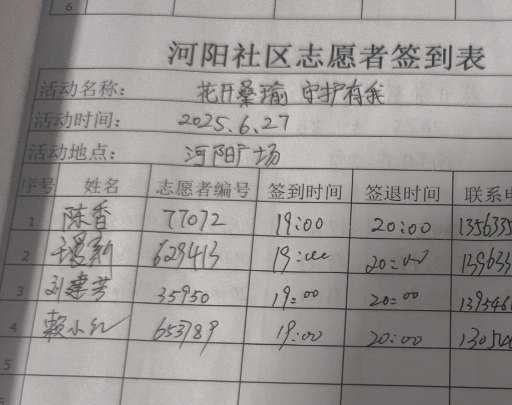 6
河阳社区志愿者签到表
活动名称： 花开桑瑜 守护有我
活动时间： 2025.6.27
活动地点： 河阳广场
序号 姓名 志愿者编号 签到时间 签退时间 联系电
1 陈香 77072 19:00 20:00 1356335
2 629413 19:00 20:00 139633
3 刘建芳 35950 19:00 20:00 1395460
4 赖小红 653789 19:00 20:00 130
5